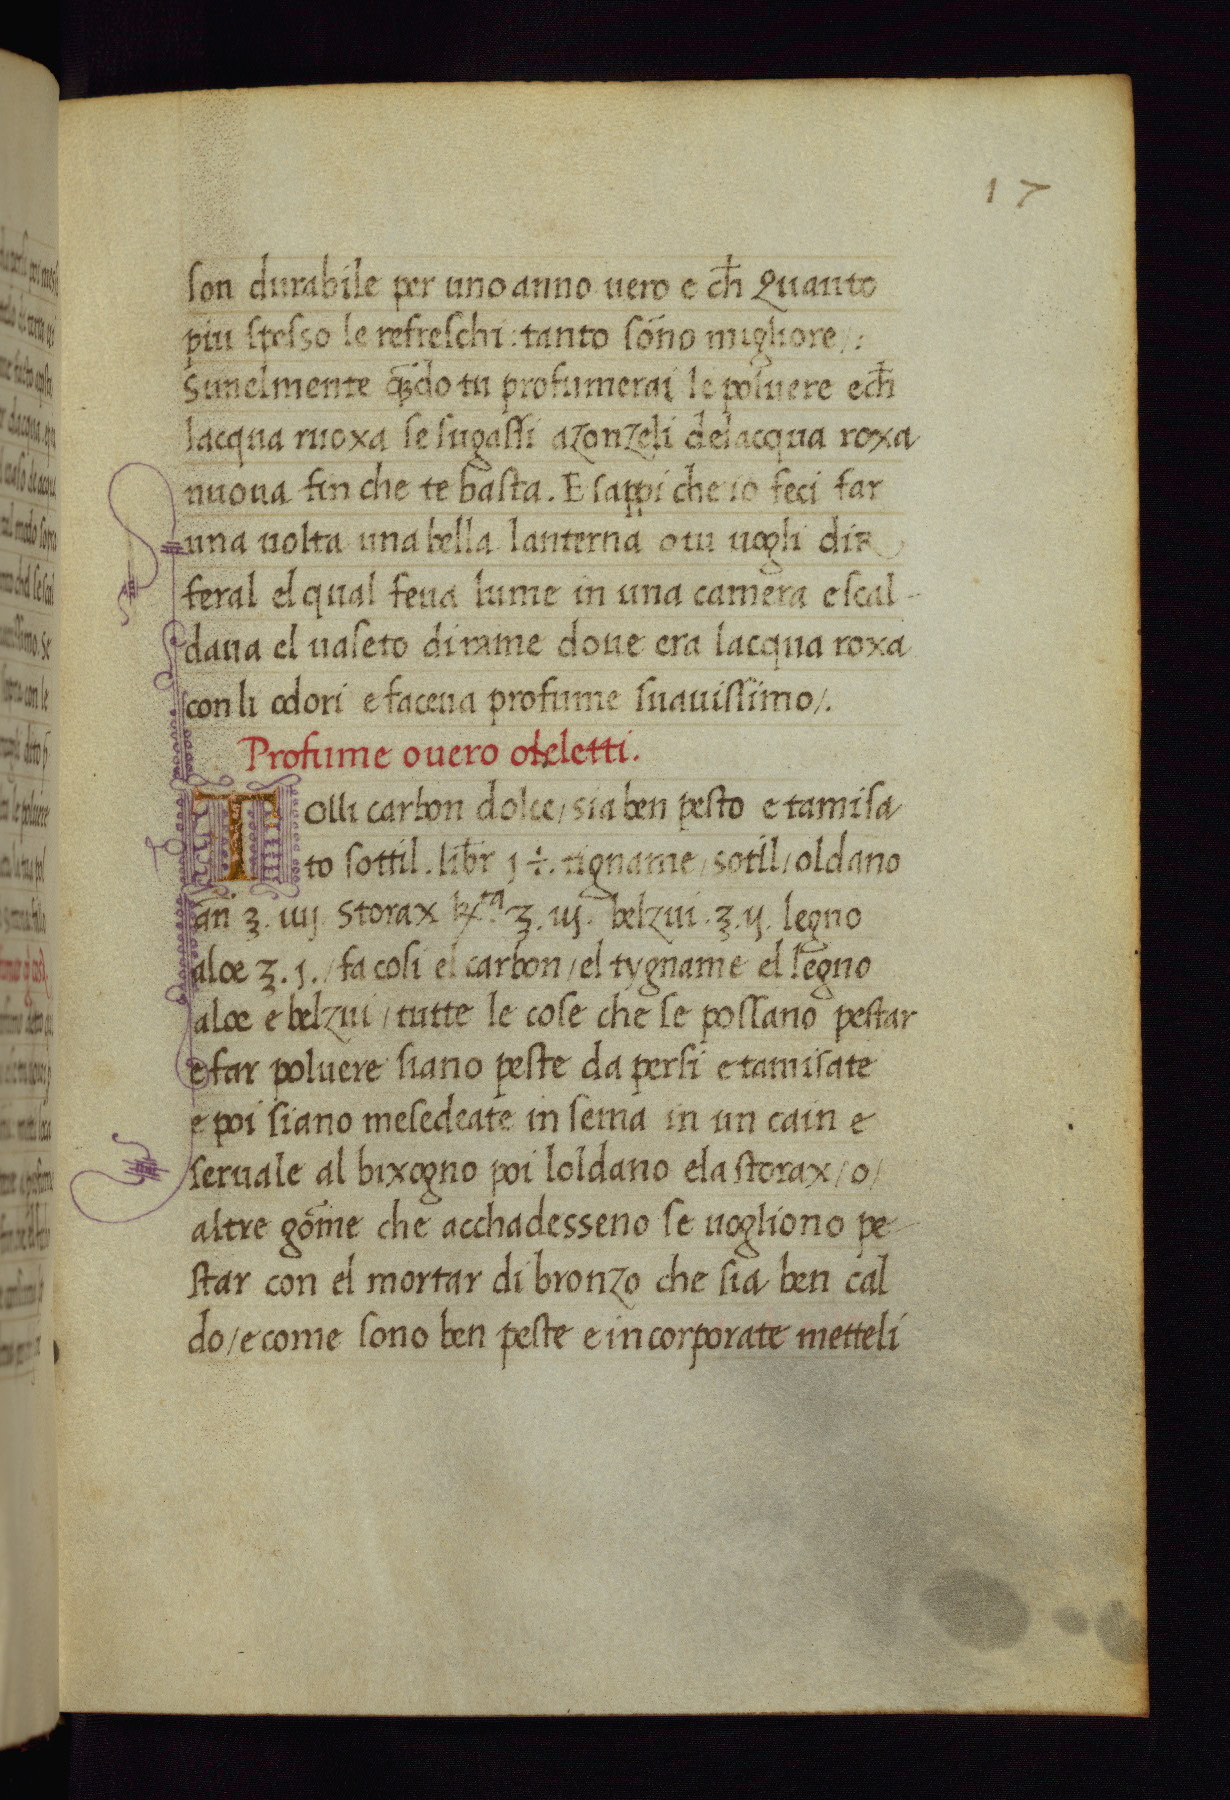 17
son durabile per uno anno uero e ch̄ Quanto
piu spesso le refreschi: tanto sōno migliore/:
Simelmente q̄do tu profumerai le poluere ech̄
lacqua ruoxa se sugassi azonzeli delacqua roxa
nuoua fin che te basta. E sappi che io feci far
una uolta una bella lanterna o tu uogli dir
feral el qual feua lume in una camera e scal-
daua el uaseto di rame doue era lacqua roxa
con li odori e faceua profume suauissimo/.
Profume ouero oseletti.
Tolli carbon dolce/sia ben pesto e tamisa
to sottil. libr j ÷. tigname/sotil/oldano
an̄ ʒ. iiij storax ʒ. iij. belzui. ʒ. ij. legno
aloe ʒ. j./fa cosi el carbon/el tygname el legno
aloe e belzui/tutte le cose che se possano pestar
e far poluere siano peste da persi e tamisate
e poi siano mesedeate in sema in un cain e
seruale al bixogno poi loldano ela storax/o/
altre gōme che acchadesseno se uogliono pe
star con el mortar di bronzo che sia ben cal
do/e come sono ben peste e incorporate metteli